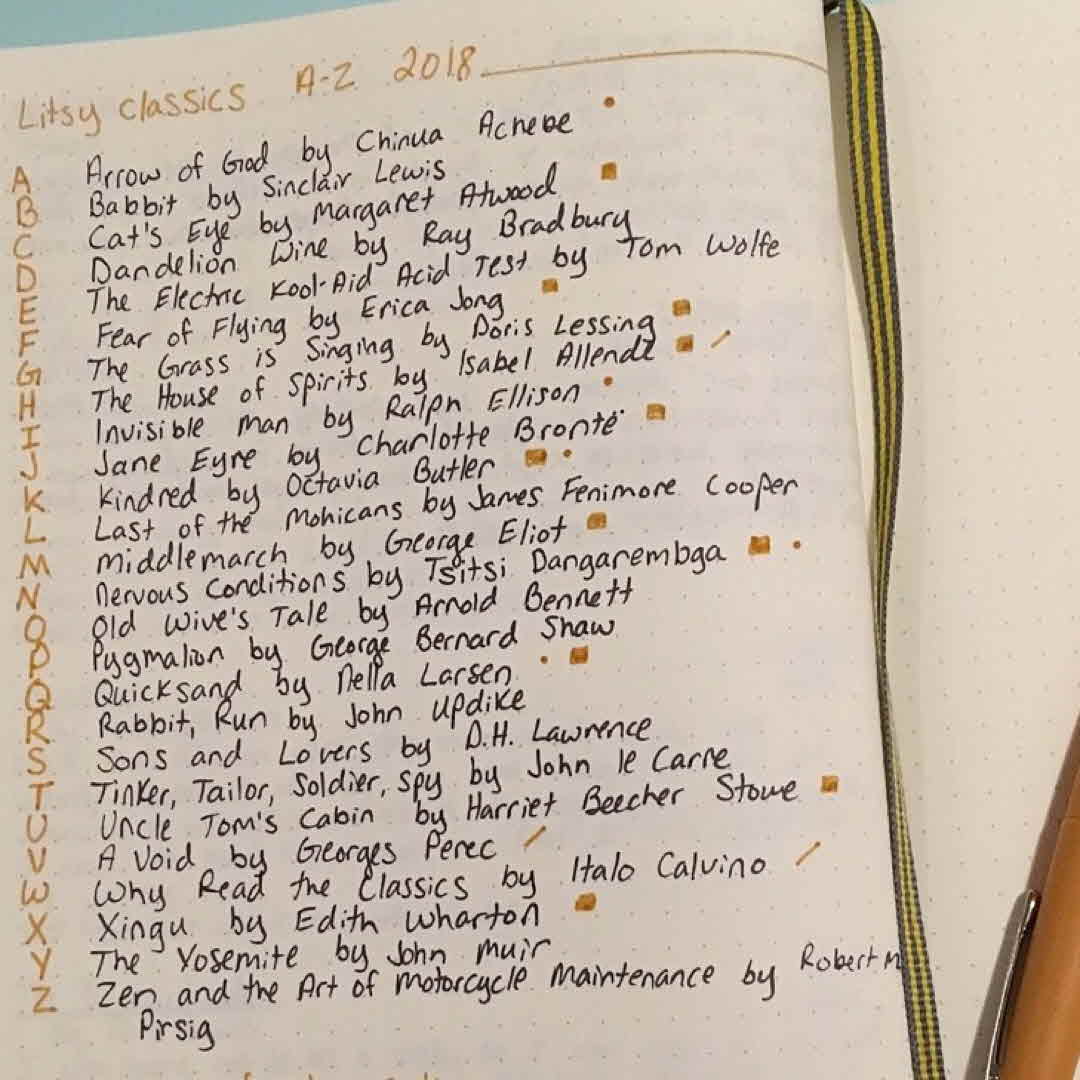 Litsy Classics A-Z 2018
A Arrow of God by Chinua Achebe
B Babbit by Sinclair Lewis
C Cat's Eye by Margaret Atwood
D Dandelion Wine by Ray Bradbury
E The Electric Kool-Aid Acid Test by Tom Wolfe
F Fear of Flying by Erica Jong
G The Grass is Singing by Doris Lessing
H The House of Spirits by Isabel Allende
I Invisible Man by Ralph Ellison
J Jane Eyre by Charlotte Brontë
K Kindred by Octavia Butler
L Last of the Mohicans by James Fenimore Cooper
M Middlemarch by George Eliot
N Nervous Conditions by Tsitsi Dangarembga
O Old Wive's Tale by Arnold Bennett
P Pygmalion by George Bernard Shaw
Q Quicksand by Nella Larsen
R Rabbit, Run by John Updike
S Sons and Lovers by D.H. Lawrence
T Tinker, Tailor, Soldier, Spy by John le Carre
U Uncle Tom's Cabin by Harriet Beecher Stowe
V A Void by Georges Perec
W Why Read the Classics by Italo Calvino
X Xingu by Edith Wharton
Y The Yosemite by John Muir
Z Zen and the Art of Motorcycle Maintenance by Robert M
Pirsig